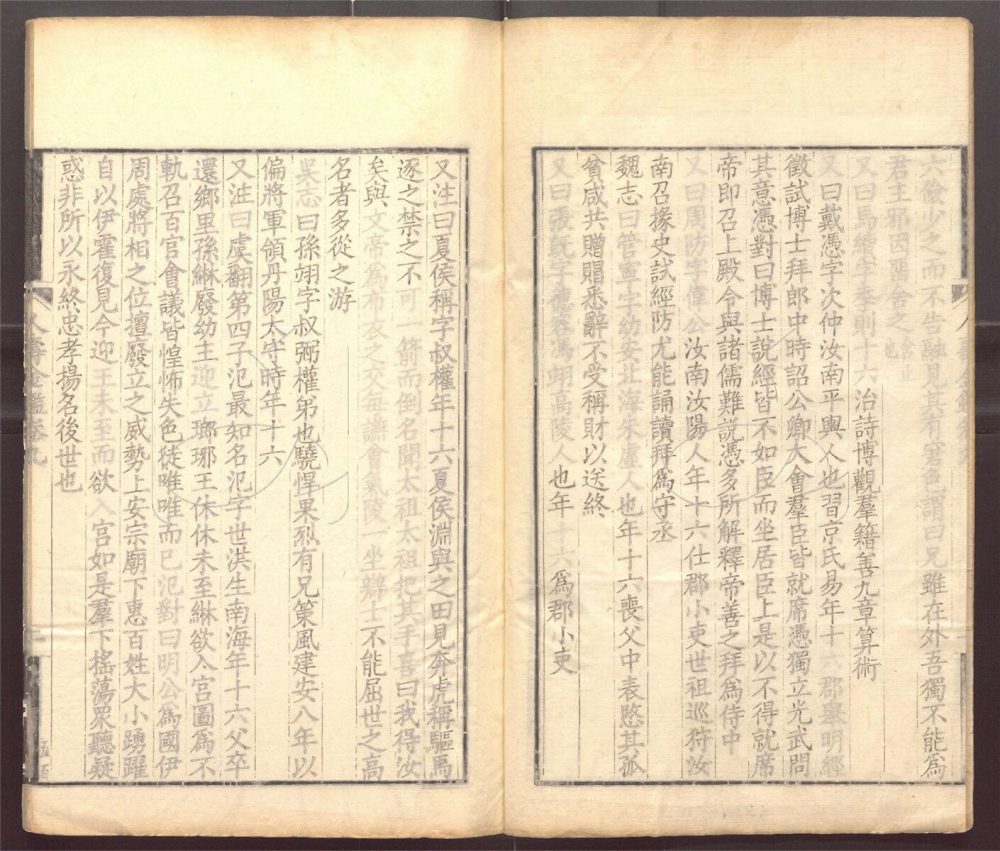 六儉少之而不告融見其有窘色謂曰兄雖在外吾獨不能爲
君主邪因留舍之
又曰馬續字季則十六治詩博觀羣籍善九章算術
又曰戴憑字次仲汝南平輿人也習京氏易年十六郡舉明經
徵試博士拜郎中時詔公卿大會羣臣皆就席憑獨立光武問
其意憑對曰博士說經皆不如臣而坐居臣上是以不得就席
帝即召上殿令與諸儒難說憑多所解釋帝善之拜爲侍中
又曰周防字偉公汝南汝陽人年十六仕郡小吏世祖巡狩汝
南召掾史試經防尤能誦讀拜爲守丞
魏志曰管寧字幼安北海朱虛人也年十六喪父中表愍其孤
貧咸共贈賵悉辭不受稱財以送終
又曰張旣字德容馮翊高陵人也年十六爲郡小吏
又注曰夏侯稱字叔權年十六夏侯淵與之田見奔虎稱驅馬
逐之禁之不可一箭而倒名聞太祖太祖把其手喜曰我得汝
矣與文帝爲布衣之交每讌會氣陵一坐辯士不能屈世之高
名者多從之游
吳志曰孫翊字叔弼權弟也驍悍果烈有兄策風建安八年以
偏將軍領丹陽太守時年十六
又注曰虞翻第四子汜最知名汜字世洪生南海年十六父卒
還鄉里孫綝廢幼主迎立瑯琊王休休未至綝欲入宮圖爲不
軌召百官會議皆惶怖失色徒唯唯而已汜對曰明公爲國伊
周處將相之位擅廢立之威勢上安宗廟下惠百姓大小踴躍
自以伊霍復見今迎王未至而欲入宮如是羣下搖蕩衆聽疑
惑非所以永終忠孝揚名後世也